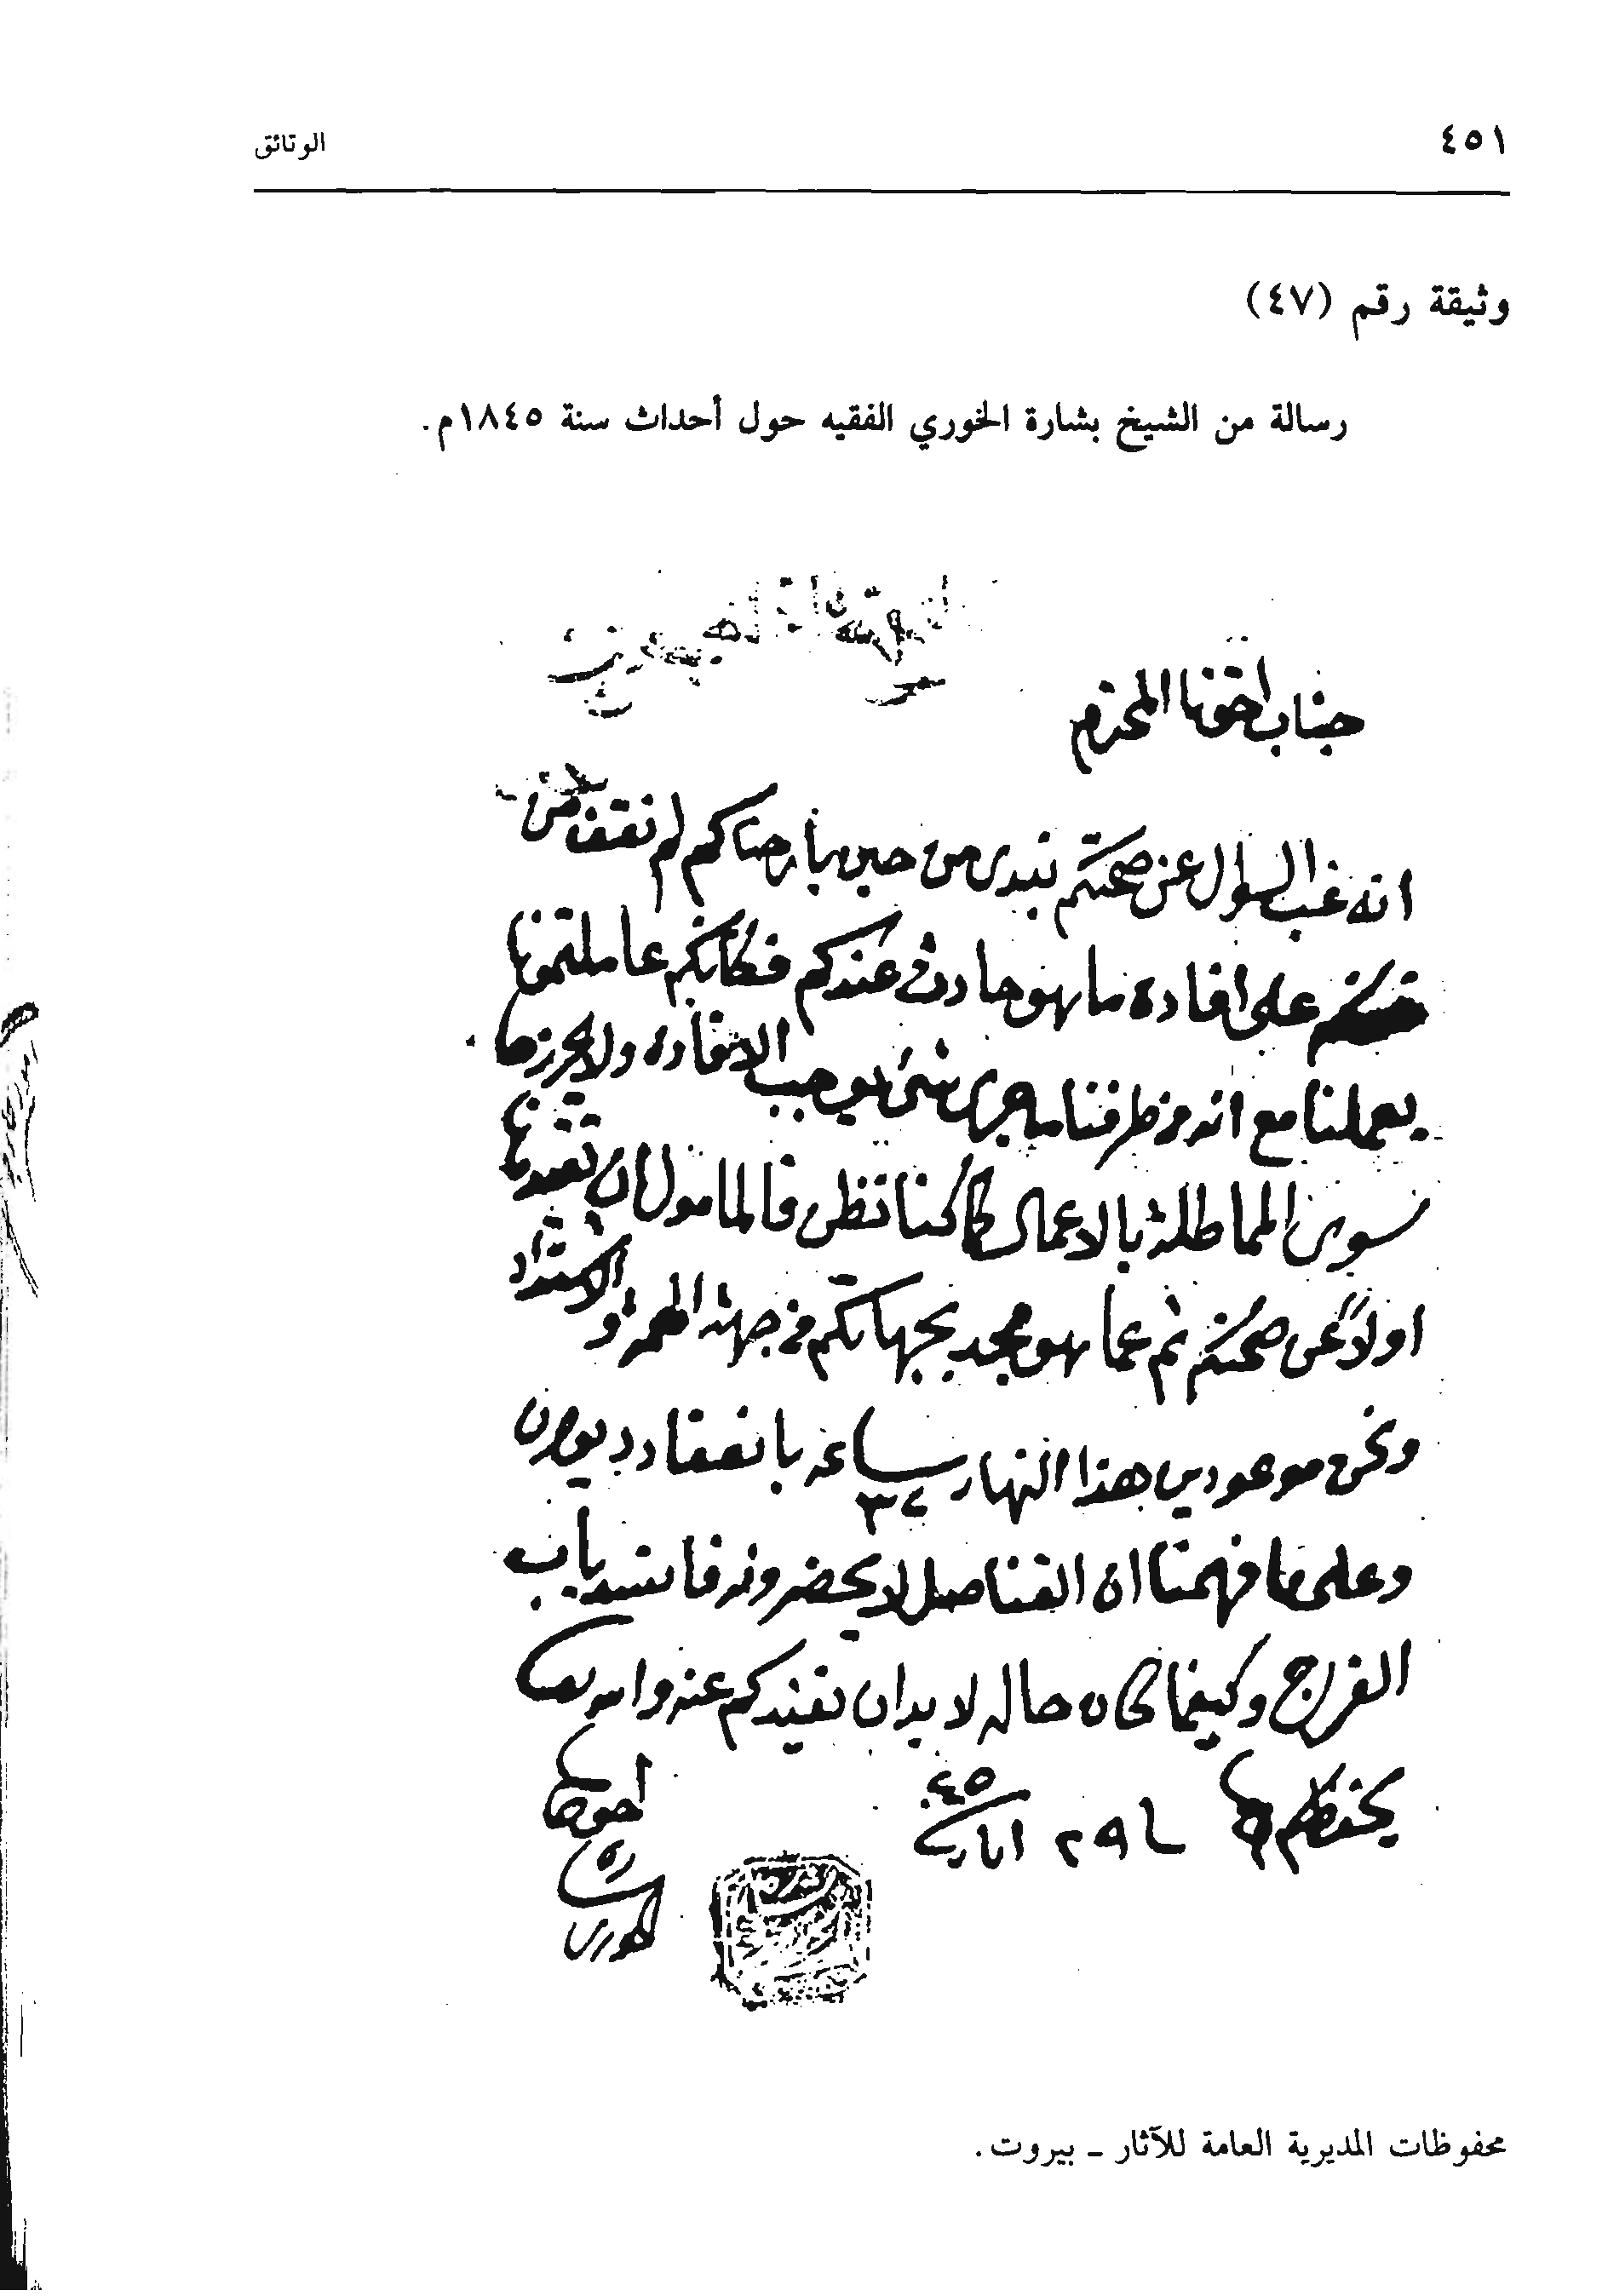 ٤٥١
الوثائق
وثيقة رقم (٤٧)
رسالة من الشيخ بشارة الخوري الفقيه حول أحداث سنة ١٨٤٥م.
جناب اخونا المحترم
انه غب السوال عن صحتكم نبدى من حين بارحناكم لم نقف من
على افاده ما هو حادث عندكم فكانكم عاملتمونا
بعملنا مع انه من طرفنا ما جرى شئ يوجب الافاده ولا
سوى المماطلة بالاعمال كما كنا نظن فالمامول ان تفيدونا
اولاً عن صحتكم ثم عما هو مجد بجهاتكم من جهة
ونحن موعودين هذا النهار ساعه بانعقاد ديوان
وعلى ما فهمنا ان القناصل لا يحضرونه فانسد باب
الفرج وكيفما كان حاله لا بد ان نفيدكم عنه والمولى
يحفظكم
٢٩ ايار ٤٥
اخوكم
بشاره
الخوري
محفوظات المديرية العامة للآثار ـ بيروت.